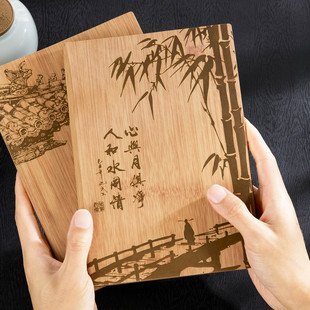 心與月俱淨
人和水同情